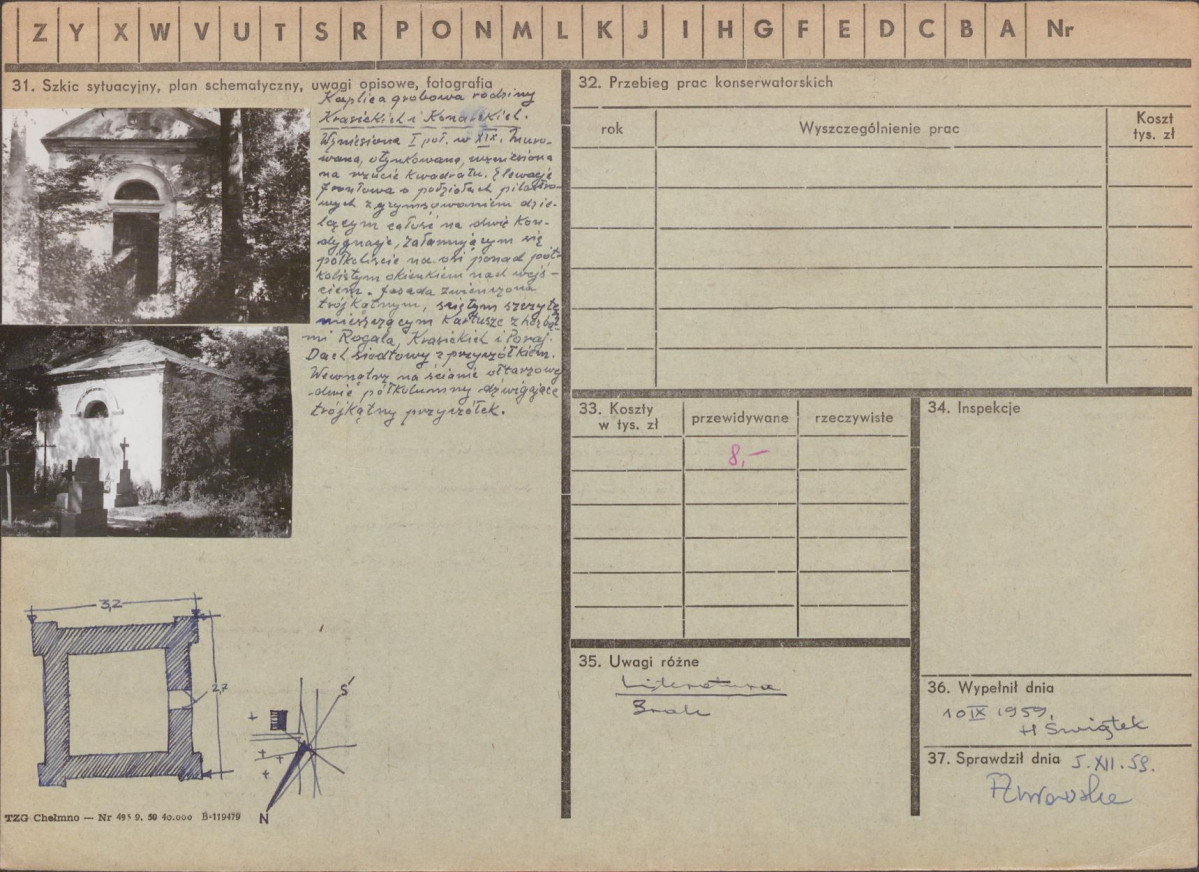 Z Y X W V U T S R P O N M L K J I H G F E D C B A Nr
31. Szkic sytuacyjny, plan schematyczny, uwagi opisowe, fotografia
Kaplica grobowa rodziny
Krasickich i
Wzniesiona I poł. w XIX. Muro-
wana, otynkowana, wzniesiona
na rzucie kwadratu. Elewacja
frontowa o podziałach pilastro-
wych z gzymsowaniem dzie-
lącym całość na dwie kon-
dygnacje, załamującym się
półkoliście na osi ponad pół-
kolistym okienkiem nad wejś-
ciem. Fasada zwieńczona
trójkątnym, ściętym szczytem
mieszczącym kartusze z herba-
mi Rogala, Krasickich i Poraj.
Dach siodłowy z przyczółkiem.
Wewnątrz na ścianie ołtarzowej
dwie półkolumny dźwigające
trójkątny przyczółek.
3,2
2,7
Ś
N
TZG Chełmno — Nr 493 9. 50 40.000 B-119479
32. Przebieg prac konserwatorskich
rok
Wyszczególnienie prac
Koszt
tys. zł
33. Koszty
w tys. zł
przewidywane
rzeczywiste
8,-
34. Inspekcje
35. Uwagi różne
Literatura
Brak
36. Wypełnił dnia
10 IX 1959.
H Świątek
37. Sprawdził dnia 5.XII.59.